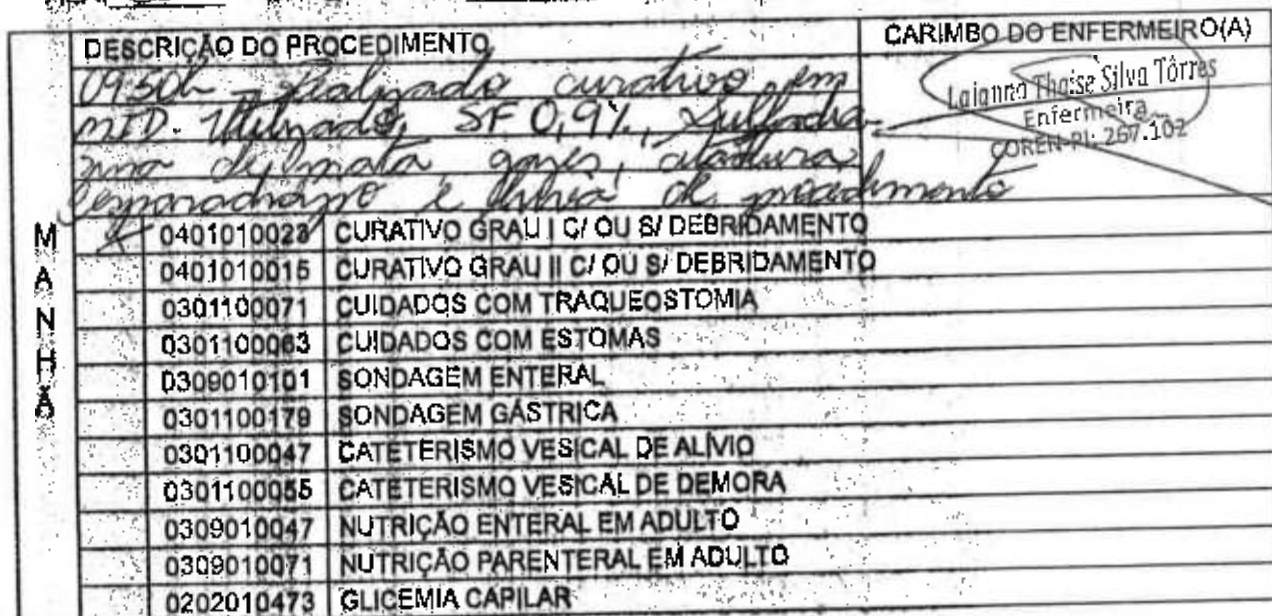 DESCRIÇÃO DO PROCEDIMENTO
CARIMBO DO ENFERMEIRO(A)
09:50h - Realizado curativo em
MID. Utilizado, SF 0,9%, Sulfadia-
Laianna Thaise Silva Tôrres
Enfermeira
COREN-PI: 267.102
zina de prata, gazes, atadura,
esparadrapo e luva de procedimento
MANHÃ
X 0401010023 CURATIVO GRAU I C/ OU S/ DEBRIDAMENTO
0401010015 CURATIVO GRAU II C/ OU S/ DEBRIDAMENTO
0301100071 CUIDADOS COM TRAQUEOSTOMIA
0301100063 CUIDADOS COM ESTOMAS
0309010101 SONDAGEM ENTERAL
0301100179 SONDAGEM GÁSTRICA
0301100047 CATETERISMO VESICAL DE ALÍVIO
0301100055 CATETERISMO VESICAL DE DEMORA
0309010047 NUTRIÇÃO ENTERAL EM ADULTO
0309010071 NUTRIÇÃO PARENTERAL EM ADULTO
0202010473 GLICEMIA CAPILAR